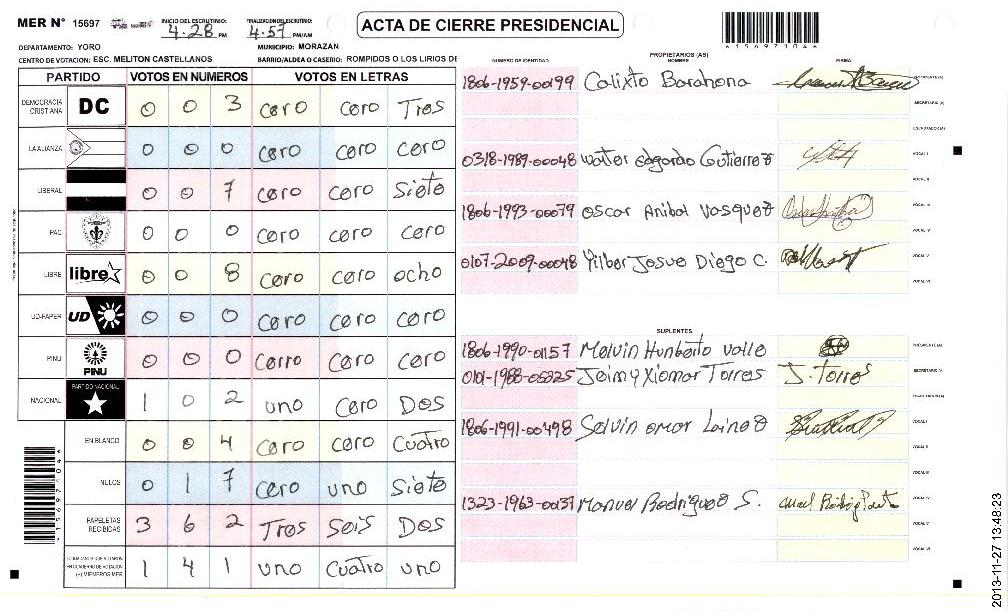 MER Nº 15697 INICIO DEL ESCRUTINIO: 4.28 PM FINALIZACION DEL ESCRUTINIO: 4.57 PM/AM ACTA DE CIERRE PRESIDENCIAL
1 5 6 9 7 1 0 4
DEPARTAMENTO: YORO MUNICIPIO: MORAZAN
CENTRO DE VOTACION: ESC. MELITON CASTELLANOS BARRIO/ALDEA O CASERIO: ROMPIDOS O LOS LIRIOS DE
PARTIDO VOTOS EN NUMEROS VOTOS EN LETRAS
DEMOCRACIA CRISTIANA DC 0 0 3 cero cero Tres
LA ALIANZA 0 0 0 cero cero cero
LIBERAL 0 0 7 cero cero Siete
PAC 0 0 0 cero cero cero
LIBRE libre 0 0 8 cero cero ocho
UD-FAPER UD 0 0 0 cero cero cero
PINU PINU 0 0 0 cerro cero cero
NACIONAL PARTIDO NACIONAL 1 0 2 uno cero Dos
EN BLANCO 0 0 4 cero cero Cuatro
NULOS 0 1 7 cero uno Siete
PAPELETAS RECIBIDAS 3 6 2 Tres Seis Dos
CIUDADANOS QUE VOTARON EN CUADERNO DE VOTACION (+) MIEMBROS MER 1 4 1 uno Cuatro uno
1 5 6 9 7 1 0 4
PROPIETARIOS (AS)
NUMERO DE IDENTIDAD NOMBRE FIRMA
1806-1959-00199 Calixto Barahona PRESIDENTE (A)
SECRETARIO (A)
ESCRUTADOR (A)
0318-1989-00048 Walter edgardo Gutierrez VOCAL I
VOCAL II
1806-1993-00079 oscar Anibal Vasquez VOCAL III
VOCAL IV
0107-2009-00048 Yilber Josue Diego C. VOCAL V
VOCAL VI
SUPLENTES
1806-1990-01157 Melvin Humberto valle PRESIDENTE (A)
0101-1988-05325 Jeimy Xiomar Torres J. Torres SECRETARIO (A)
ESCRUTADOR (A)
1806-1991-00498 Selvin omar Lainez VOCAL I
VOCAL II
VOCAL III
1323-1963-00037 Manuel Rodriguez S. VOCAL IV
VOCAL V
VOCAL VI
2013-11-27 13:48:23